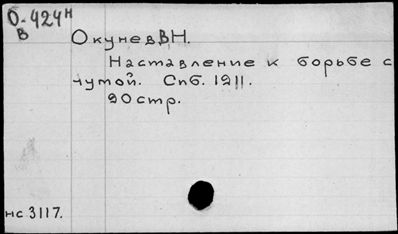 О-424н
В
Окунев В Н.
Наставление к борьбе с
чумой. Спб. 1911.
20 стр.
нс 3117.